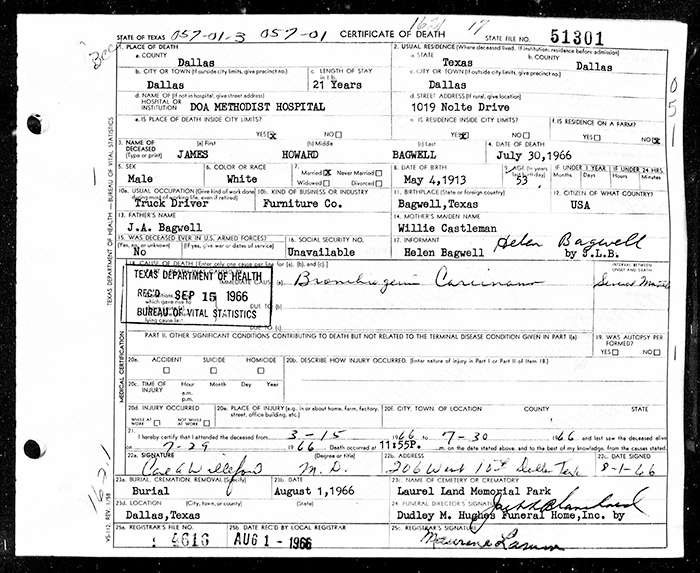 STATE OF TEXAS 057-01-3 057-01 CERTIFICATE OF DEATH 162.1 17 STATE FILE NO. 51301
1. PLACE OF DEATH 2. USUAL RESIDENCE (Where deceased lived. If institution: residence before admission)
a. COUNTY Dallas a. STATE Texas b. COUNTY Dallas
b. CITY OR TOWN (If outside city limits, give precinct no.) Dallas c. LENGTH OF STAY in 1b. 21 Years c. CITY OR TOWN (If outside city limits, give precinct no.) Dallas
d. NAME OF (If not in hospital, give street address) HOSPITAL OR INSTITUTION DOA METHODIST HOSPITAL d. STREET ADDRESS (If rural, give location) 1019 Nolte Drive
e. IS PLACE OF DEATH INSIDE CITY LIMITS? YES X NO e. IS RESIDENCE INSIDE CITY LIMITS? YES X NO f. IS RESIDENCE ON A FARM? YES NO X
3. NAME OF DECEASED (Type or print) (a) First JAMES (b) Middle HOWARD (c) Last BAGWELL 4. DATE OF DEATH July 30,1966
5. SEX Male 6. COLOR OR RACE White 7. Married X Never Married Widowed Divorced 8. DATE OF BIRTH May 4,1913 9. AGE (In years last birthday) 53 IF UNDER 1 YEAR Months Days IF UNDER 24 HRS. Hours Min.
10a. USUAL OCCUPATION (Give kind of work done during most of working life, even if retired) Truck Driver 10b. KIND OF BUSINESS OR INDUSTRY Furniture Co. 11. BIRTHPLACE (State or foreign country) Bagwell,Texas 12. CITIZEN OF WHAT COUNTRY? USA
13. FATHER'S NAME J.A. Bagwell 14. MOTHER'S MAIDEN NAME Willie Castleman
15. WAS DECEASED EVER IN U.S. ARMED FORCES? (Yes, no, or unknown) (If yes, give war or dates of service) No 16. SOCIAL SECURITY NO. Unavailable 17. INFORMANT Helen Bagwell Helen Bagwell by J.L.B.
18. CAUSE OF DEATH [Enter only one cause per line for (a), (b), and (c).] INTERVAL BETWEEN ONSET AND DEATH
TEXAS DEPARTMENT OF HEALTH
REC'D SEP 15 1966
BUREAU OF VITAL STATISTICS
IMMEDIATE CAUSE (a) Bronchogenic Carcinoma Several Months
which gave rise to DUE TO (b)
lying cause last. DUE TO (c)
PART II. OTHER SIGNIFICANT CONDITIONS CONTRIBUTING TO DEATH BUT NOT RELATED TO THE TERMINAL DISEASE CONDITION GIVEN IN PART I(a) 19. WAS AUTOPSY PERFORMED? YES NO
20a. ACCIDENT SUICIDE HOMICIDE 20b. DESCRIBE HOW INJURY OCCURRED. (Enter nature of injury in Part I or Part II of Item 18.)
20c. TIME OF INJURY Hour a.m. p.m. Month Day Year
20d. INJURY OCCURRED WHILE AT WORK NOT WHILE AT WORK 20e. PLACE OF INJURY (e.g., in or about home, farm, factory, street, office building, etc.) 20f. CITY, TOWN, OR LOCATION COUNTY STATE
21. I hereby certify that I attended the deceased from 3-15 1966 to 7-30 1966 and last saw the deceased alive
on 7-29 1966. Death occurred at 11:55P.m. on the date stated above, and to the best of my knowledge, from the causes stated.
22a. SIGNATURE (Degree or title) M.D. 22b. ADDRESS 206 West 10th Dallas Tex 22c. DATE SIGNED 8-1-66
23a. BURIAL, CREMATION, REMOVAL (Specify) Burial 23b. DATE August 1,1966 23c. NAME OF CEMETERY OR CREMATORY Laurel Land Memorial Park
23d. LOCATION (City, town, or county) (State) Dallas,Texas 24. FUNERAL DIRECTOR'S SIGNATURE Dudley M. Hughes Funeral Home,Inc. by
25a. REGISTRAR'S FILE NO. 4616 25b. DATE REC'D BY LOCAL REGISTRAR AUG 1 - 1966 25c. REGISTRAR'S SIGNATURE
TEXAS DEPARTMENT OF HEALTH — BUREAU OF VITAL STATISTICS
MEDICAL CERTIFICATION
VS-112, REV. 1/58
162.1
0
5
1